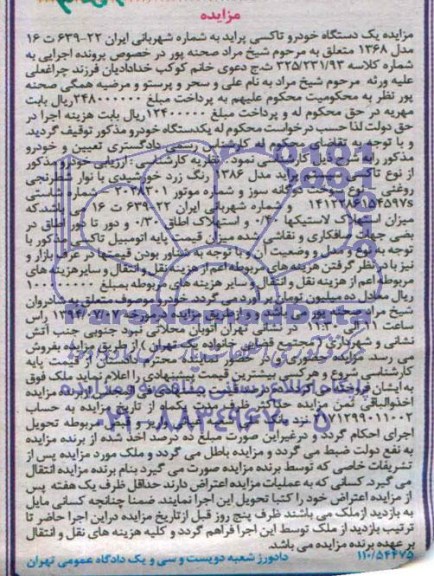 مزایده
مزایده یک دستگاه خودرو تاکسی پراید به شماره شهربانی ایران ۲۲-۶۳۹ ت ۱۶
مدل ۱۳۶۸ متعلق به مرحوم شیخ مراد صحنه پور در خصوص پرونده اجرایی به
شماره کلاسه ۳۲۵/۲۳۱/۹۳ ش.ج دعوی خانم کوکب خدادادیان فرزند چراغعلی
علیه ورثه مرحوم شیخ مراد به نام علی و سحر و پرستو و مرضیه همگی صحنه
پور نظر به محکومیت محکوم علیهم به پرداخت مبلغ ۲۴۸۰۰۰۰۰۰ ریال بابت
مهریه در حق محکوم له و پرداخت مبلغ ۱۲۴۰۰۰۰۰ ریال بابت هزینه اجرا در
حق دولت لذا حسب درخواست محکوم له یکدستگاه خودرو مذکور توقیف گردید.
و با توجه به تقاضای محکوم له کارشناس رسمی دادگستری تعیین و خودرو
مذکور را به شرح ذیل کارشناسی نمود: نظریه کارشناسی: ارزیابی خودرو مذکور
از نوع تاکسی پراید مدل ۱۳۸۶ رنگ زرد خورشیدی با نوار شطرنجی
روغنی نوع سوخت دوگانه سوز و شماره موتور ۲۰۳۸۳۰۱ شماره شاسی
۱۴۱۲۲۸۶۱۵۴۵۹۷s شماره شهربانی ایران ۲۲-۶۳۹ ت ۱۶ می باشد که
میزان استهلاک لاستیکها ۲۰٪ و استهلاک اطاق ۳۰٪ و دور تا دور اطاق در
بعضی جهات صافکاری و نقاشی شده میزان قیمت پایه اتومبیل تاکسی مذکور با
توجه به نوع و مدل و وضعیت آن و با توجه به شناور بودن قیمتها در عرف بازار و
نیز با در نظر گرفتن هزینه های مربوطه اعم از هزینه نقل و انتقال و سایر هزینه های
مربوطه اعم از هزینه نقل و انتقال و سایر هزینه های مربوطه بمبلغ ۱۰۰۰۰۰۰۰۰
ریال معادل ده میلیون تومان برآورد می گردد. خودرو موصوف متعلق به شادروان
شیخ مراد صحنه پور می باشد و از طریق مزایده در مورخه ۱۳۹۴/۰۷/۰۱ راس
ساعت ۱۱ الی ۱۱:۳۰ در نشانی تهران اتوبان محلاتی نبرد جنوبی جنب آتش
نشانی و شهرداری (مجتمع قضایی خانواده یک تهران) از طریق مزایده بفروش
می رسد. مزایده حضوری در صورت تمایل محترم داوطلبان از قیمت پایه
کارشناسی شروع و هر کس بیشترین قیمت پیشنهادی را اعلام نماید ملک فوق
به ایشان فروخته می گردد. ده درصد قیمت پیشنهادی فی المجلس از برنده مزایده
اخذ و الباقی ثمن مزایده حداکثر ظرف مدت یکماه از تاریخ مزایده به حساب
۲۱۷۱۲۹۹۰۱۱۰۰۲ نزد بانک ملی شعبه واریز و فیش مربوطه تحویل
اجرای احکام گردد و در غیر این صورت مبلغ ده درصد اخذ شده از برنده مزایده
به نفع دولت ضبط می گردد و مزایده باطل می گردد و ملک مورد مزایده پس از
تشریفات خاصی که توسط برنده مزایده صورت می گیرد بنام برنده مزایده انتقال
می گیرد. کسانی که به عملیات مزایده اعتراض دارند حداقل ظرف یک هفته پس
از مزایده اعتراض خود را کتبا تحویل این اجرا نمایند. ضمنا چنانچه کسانی مایل
به بازدید از ملک می باشند ظرف پنج روز قبل از تاریخ مزایده در این اجرا حاضر تا
ترتیب بازدید از ملک توسط این اجرا فراهم گردد و کلیه هزینه های نقل و انتقال
بر عهده برنده مزایده می باشد.
۱۱۰/۵۴۴۷۵ دادورز شعبه دویست و سی و یک دادگاه عمومی تهران